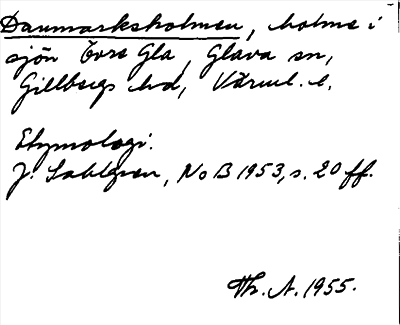 Danmarksholmen, holme i
sjön Övre Gla, Glava sn,
Gillbergs hd, Värml. l.
Etymologi:
J. Sahlgren, NoB 1953, s. 20 ff.
Th. A. 1955.